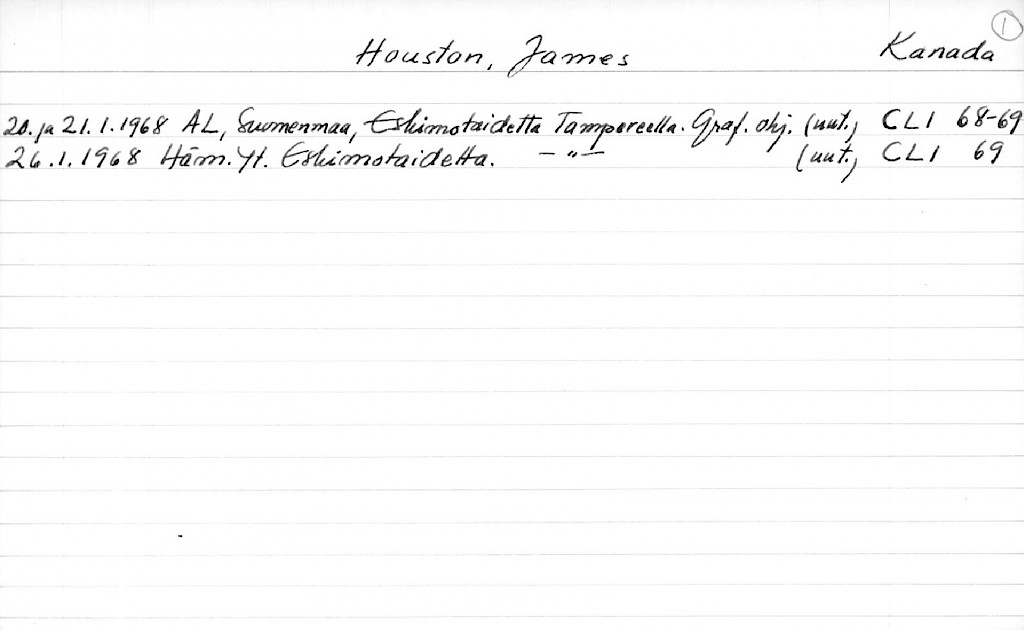 ①
Houston, James Kanada
20. ja 21.1.1968 AL, Suomenmaa, Eskimotaidetta Tampereella. Graf. ohj. (uut.) CLI 68-69
26.1.1968 Häm.Yt. Eskimotaidetta. —〃— (uut.) CLI 69